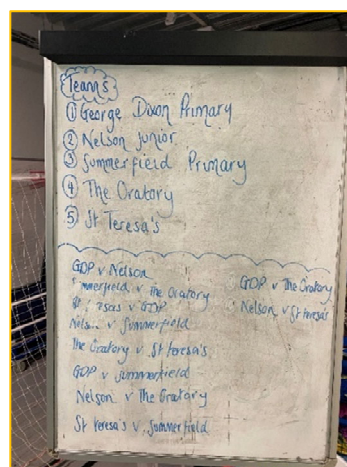 Teams
1 George Dixon Primary
2 Nelson Junior
3 Summerfield Primary
4 The Oratory
5 St Teresa's
GDP v Nelson
v The Oratory
v GDP
v Summerfield
The Oratory v St Teresa's
GDP v Summerfield
Nelson v The Oratory
St Teresa's v Summerfield
GDP v The Oratory
Nelson v St Teresa's